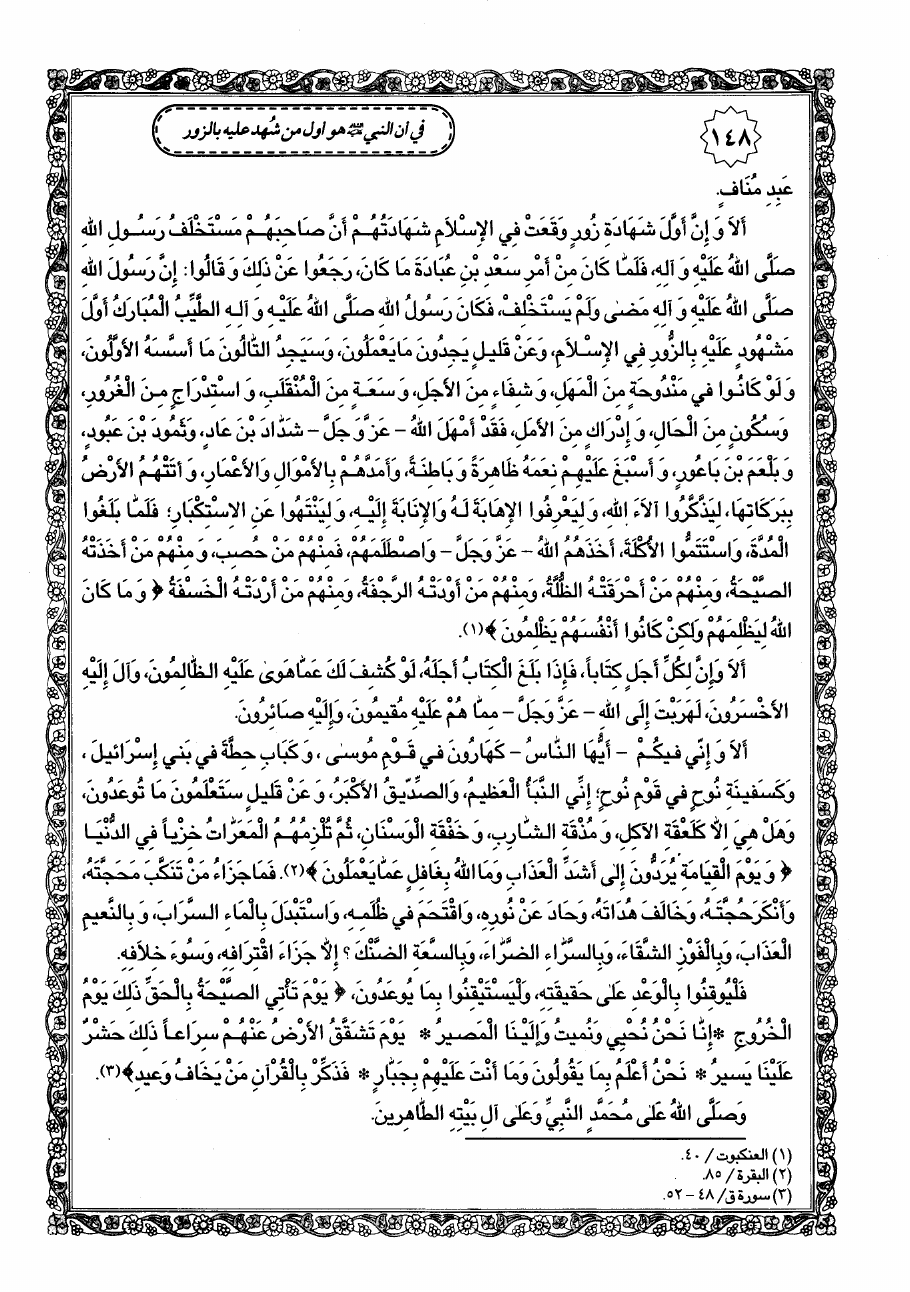 ١٤٨
في أن النبي ﷺ هو أول من شُهد عليه بالزور
عَبِدِ مُنَافٍ.
أَلَا وَ إِنَّ أَوَّلَ شَهَادَةِ زُورٍ وَقَعَتْ فِي الإِسْلَامِ شَهَادَتُهُمْ أَنَّ صَاحِبَهُمْ مُسْتَخْلَفُ رَسُولِ اللهِ
صلَّى اللهُ عَلَيْهِ وَ آلِهِ، فَلَمَّا كَانَ مِنْ أَمْرِ سَعْدِ بْنِ عُبَادَةَ مَا كَانَ، رَجَعُوا عَنْ ذَلِكَ وَ قَالُوا: إِنَّ رَسُولَ اللهِ
صلَّى اللهُ عَلَيْهِ وَ آلِهِ مَضىٰ وَلَمْ يَسْتَخْلِفْ، فَكَانَ رَسُولُ اللهِ صلَّى اللهُ عَلَيْهِ وَ آلِهِ الطَّيِّبُ الْمُبَارَكُ أَوَّلَ
مَشْهُودٍ عَلَيْهِ بِالزُّورِ فِي الإِسْلَامِ، وَعَنْ قَلِيلٍ يَجِدُونَ مَايَعْمَلُونَ، وَسَيَجِدُ التَّالُونَ مَا أَسَّسَهُ الأَوَّلُونَ،
وَ لَوْ كَانُوا فِي مَنْدُوحَةٍ مِنَ الْمَهَلِ، وَ شِفَاءٍ مِنَ الأَجَلِ، وَ سَعَةٍ مِنَ الْمُنْقَلَبِ، وَ اسْتِدْرَاجٍ مِنَ الْغُرُورِ،
وَسُكُونٍ مِنَ الْحَالِ، وَ إِدْرَاكٍ مِنَ الأَمَلِ، فَقَدْ أَمْهَلَ اللهُ – عَزَّ وَ جَلَّ – شَدَّادَ بْنَ عَادٍ، وَثَمُودَ بْنَ عَبُودٍ،
وَ بَلْعَمَ بْنَ بَاعُورٍ، وَ أَسْبَغَ عَلَيْهِمْ نِعَمَهُ ظَاهِرَةً وَ بَاطِنَةً، وَأَمَدَّهُمْ بِالأَمْوَالِ وَالأَعْمَارِ، وَ أَتَتْهُمُ الأَرْضُ
بِبَرَكَاتِهَا، لِيَذَّكَّرُوا آلَاءَ اللهِ، وَ لِيَعْرِفُوا الإِهَابَةَ لَهُ وَالإِنَابَةَ إِلَيْهِ، وَ لِيَنْتَهُوا عَنِ الاِسْتِكْبَارِ؛ فَلَمَّا بَلَغُوا
الْمُدَّةَ، وَاسْتَتَمُّوا الأُكْلَةَ، أَخَذَهُمُ اللهُ – عَزَّ وَجَلَّ – وَاصْطَلَمَهُمْ، فَمِنْهُمْ مَنْ حُصِبَ، وَ مِنْهُمْ مَنْ أَخَذَتْهُ
الصَّيْحَةُ، وَمِنْهُمْ مَنْ أَحْرَقَتْهُ الظُّلَّةُ، وَمِنْهُمْ مَنْ أَوْدَتْهُ الرَّجْفَةُ، وَمِنْهُمْ مَنْ أَرْدَتْهُ الْخَسْفَةُ ﴿ وَ مَا كَانَ
اللهُ لِيَظْلِمَهُمْ وَلَكِنْ كَانُوا أَنْفُسَهُمْ يَظْلِمُونَ ﴾(١).
أَلَا وَإِنَّ لِكُلِّ أَجَلٍ كِتَاباً، فَإِذَا بَلَغَ الْكِتَابُ أَجَلَهُ، لَوْ كُشِفَ لَكَ عَمَّاهَوىٰ عَلَيْهِ الظَّالِمُونَ، وَآلَ إِلَيْهِ
الأَخْسَرُونَ، لَهَرَبْتَ إِلَى اللهِ – عَزَّ وَجَلَّ – مِمَّا هُمْ عَلَيْهِ مُقِيمُونَ، وَإِلَيْهِ صَائِرُونَ.
أَلَا وَ إِنِّي فِيكُمْ – أَيُّهَا النَّاسُ – كَهَارُونَ فِي قَوْمِ مُوسىٰ، وَ كَبَابِ حِطَّةَ فِي بَنِي إِسْرَائِيلَ،
وَكَسَفِينَةِ نُوحٍ فِي قَوْمِ نُوحٍ؛ إِنِّي النَّبَأُ الْعَظِيمُ، وَالصِّدِّيقُ الأَكْبَرُ، وَ عَنْ قَلِيلٍ سَتَعْلَمُونَ مَا تُوعَدُونَ،
وَهَلْ هِيَ إِلَّا كَلَعْقَةِ الآكِلِ، وَ مُذْقَةِ الشَّارِبِ، وَ خَفْقَةِ الْوَسْنَانِ، ثُمَّ تُلْزِمُهُمُ الْمَعَرَّاتُ خِزْياً فِي الدُّنْيَا
﴿ وَ يَوْمَ الْقِيَامَةِ يُرَدُّونَ إِلى أَشَدِّ الْعَذَابِ وَمَا اللهُ بِغَافِلٍ عَمَّايَعْمَلُونَ ﴾(٢). فَمَاجَزَاءُ مَنْ تَنَكَّبَ مَحَجَّتَهُ،
وَأَنْكَرَحُجَّتَهُ، وَخَالَفَ هُدَاتَهُ، وَحَادَ عَنْ نُورِهِ، وَاقْتَحَمَ فِي ظُلَمِهِ، وَاسْتَبْدَلَ بِالْمَاءِ السَّرَابَ، وَ بِالنَّعِيمِ
الْعَذَابَ، وَبِالْفَوْزِ الشَّقَاءَ، وَبِالسَّرَّاءِ الضَّرَّاءَ، وَبِالسَّعَةِ الضَّنْكَ؟ إِلَّا جَزَاءَ اقْتِرَافِهِ، وَسُوءَ خِلَافِهِ.
فَلْيُوقِنُوا بِالْوَعْدِ عَلىٰ حَقِيقَتِهِ، وَلْيَسْتَيْقِنُوا بِمَا يُوعَدُونَ، ﴿ يَوْمَ تَأْتِي الصَّيْحَةُ بِالْحَقِّ ذَلِكَ يَوْمُ
الْخُرُوجِ *إِنَّا نَحْنُ نُحْيِي وَنُمِيتُ وَإِلَيْنَا الْمَصِيرُ* يَوْمَ تَشَقَّقُ الأَرْضُ عَنْهُمْ سِرَاعاً ذَلِكَ حَشْرٌ
عَلَيْنَا يَسِيرٌ* نَحْنُ أَعْلَمُ بِمَا يَقُولُونَ وَمَا أَنْتَ عَلَيْهِمْ بِجَبَّارٍ * فَذَكِّرْ بِالْقُرْآنِ مَنْ يَخَافُ وَعِيدِ﴾(٣).
وَصَلَّى اللهُ عَلىٰ مُحَمَّدٍ النَّبِيِّ وَعَلىٰ آلِ بَيْتِهِ الطَّاهِرِينَ.
(١) العنكبوت / ٤٠.
(٢) البقرة / ٨٥.
(٣) سورة ق/ ٤٨ – ٥٢.